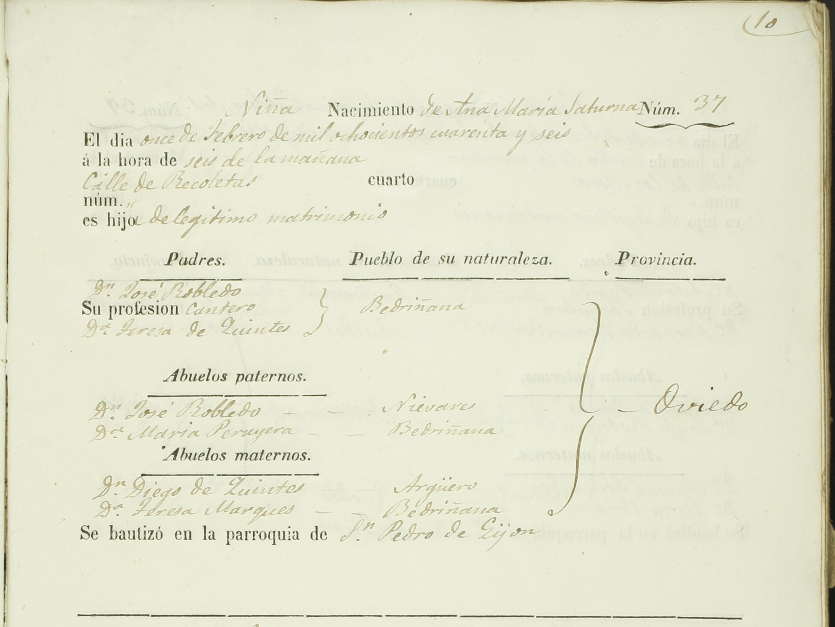 10
Niña Nacimiento de Ana María Saturna Núm. 37
El dia once de Febrero de mil ochocientos cuarenta y seis
á la hora de seis de la mañana
Calle de Recoletas cuarto
núm. "
es hija de legitimo matrimonio
Padres. Pueblo de su naturaleza. Provincia.
Dn. José Robledo
Su profesion Cantero Bedriñana
Da. Teresa de Quintes
Abuelos paternos.
Dn. José Robledo — — Nievares — Oviedo
Da. Maria Peruyera — — Bedriñana
Abuelos maternos.
Dn. Diego de Quintes — Argüero
Da. Teresa Marques — — Bedriñana
Se bautizó en la parroquia de Sn. Pedro de Gijon